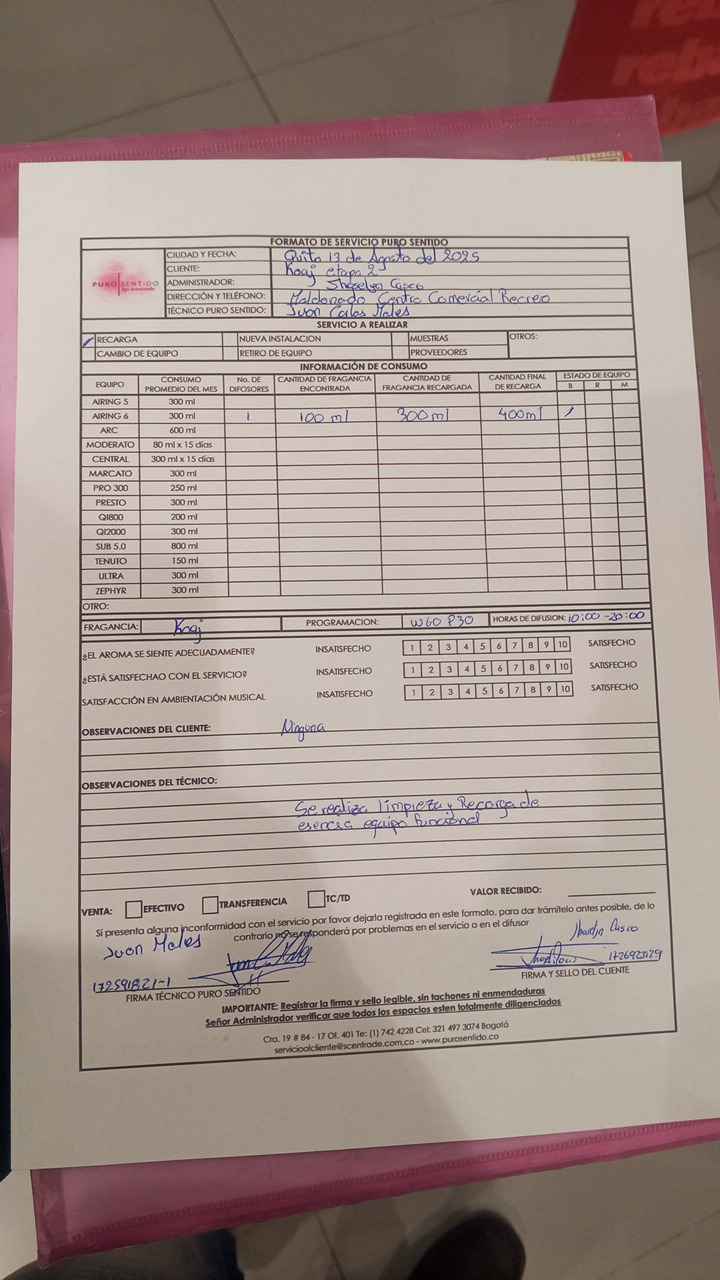 FORMATO DE SERVICIO PURO SENTIDO
PURO SENTIDO
CIUDAD Y FECHA: Quito 13 de Agosto del 2025
CLIENTE: Knaj etapa 2
ADMINISTRADOR:
DIRECCIÓN Y TELÉFONO: Maldonado Centro Comercial Recreo
TÉCNICO PURO SENTIDO: Juan Carlos Males
SERVICIO A REALIZAR
RECARGA NUEVA INSTALACION MUESTRAS OTROS:
CAMBIO DE EQUIPO RETIRO DE EQUIPO PROVEEDORES
INFORMACIÓN DE CONSUMO
EQUIPO CONSUMO PROMEDIO DEL MES No. DE DIFOSORES CANTIDAD DE FRAGANCIA ENCONTRADA CANTIDAD DE FRAGANCIA RECARGADA CANTIDAD FINAL DE RECARGA ESTADO DE EQUIPO B R M
AIRING 5 300 ml
AIRING 6 300 ml 1 100 ml 300 ml 400ml /
ARC 600 ml
MODERATO 80 ml x 15 días
CENTRAL 300 ml x 15 días
MARCATO 300 ml
PRO 300 250 ml
PRESTO 300 ml
QI800 200 ml
QI2000 300 ml
SUB 5.0 800 ml
TENUTO 150 ml
ULTRA 300 ml
ZEPHYR 300 ml
OTRO:
FRAGANCIA: Knaj PROGRAMACION: W60 P30 HORAS DE DIFUSION: 10:00 - 20:00
¿EL AROMA SE SIENTE ADECUADAMENTE? INSATISFECHO 1 2 3 4 5 6 7 8 9 10 SATISFECHO
¿ESTÁ SATISFECHAO CON EL SERVICIO? INSATISFECHO 1 2 3 4 5 6 7 8 9 10 SATISFECHO
SATISFACCIÓN EN AMBIENTACIÓN MUSICAL INSATISFECHO 1 2 3 4 5 6 7 8 9 10 SATISFECHO
OBSERVACIONES DEL CLIENTE: Ninguna
OBSERVACIONES DEL TÉCNICO:
Se realiza limpieza y Recarga de
esencia equipo funcional
VENTA: EFECTIVO TRANSFERENCIA TC/TD VALOR RECIBIDO:
Si presenta alguna inconformidad con el servicio por favor dejarla registrada en este formato, para dar trámitelo antes posible, de lo
contrario no se responderá por problemas en el servicio o en el difusor
Juan Males
172591821-1
FIRMA TÉCNICO PURO SENTIDO FIRMA Y SELLO DEL CLIENTE
IMPORTANTE: Registrar la firma y sello legible, sin tachones ni enmendaduras
Señor Administrador verificar que todos los espacios esten totalmente diligenciados
Cra. 19 # 84 - 17 Of. 401 Te: (1) 742 4228 Cel: 321 497 3074 Bogotá
servicioalcliente@scentrade.com.co - www.purosentido.co